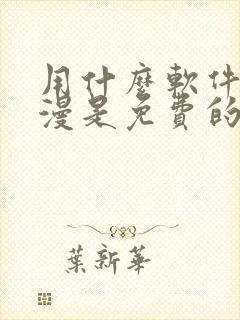 用什麼軟件
漫是免費的
葉新華